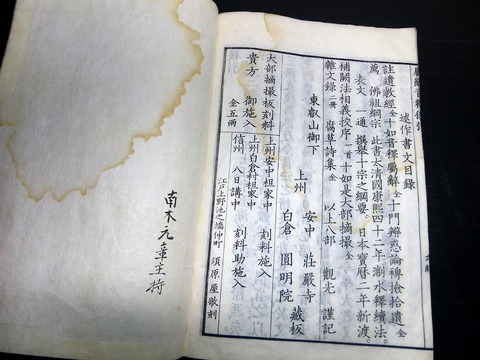 述作書文目録
註遺教經 全 十如音釋屬解 全 十門辨惑論稗撿拾遺 全
薦 佛祖綱宗 此書大清國康熙四十二年 澍水釋續法。
表文 一通 撰擧十宗之綱要。日本寶曆二年新渡。
補闕法相義挍序 一首 十如是大部摘撮 全
雜文録 二冊 腐草詩集 全 以上八部 觀光 謹記
東叡山御下
上州 安中 莊嚴寺
白倉 圓明院 藏板
大部摘撮板刻料
貴方 御施入 金五兩
上州安中祖家中 刻料施入
上州白倉村祖家中
信州 八日講中 刻料助施入
江戸上野池之端仲町 須原屋歌刻
南木元章主持